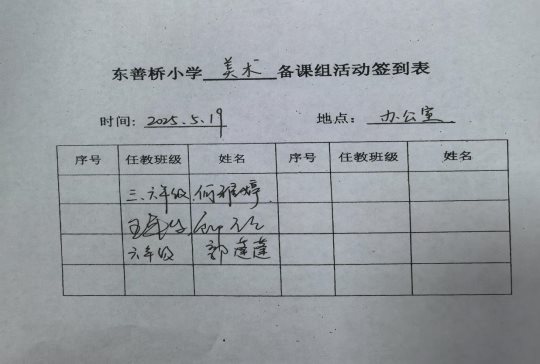 东善桥小学 美术 备课组活动签到表
时间: 2025.5.19 地点: 办公室
序号 任教班级 姓名 序号 任教班级 姓名
三、六年级 何雅婷
六年级 郭莲莲